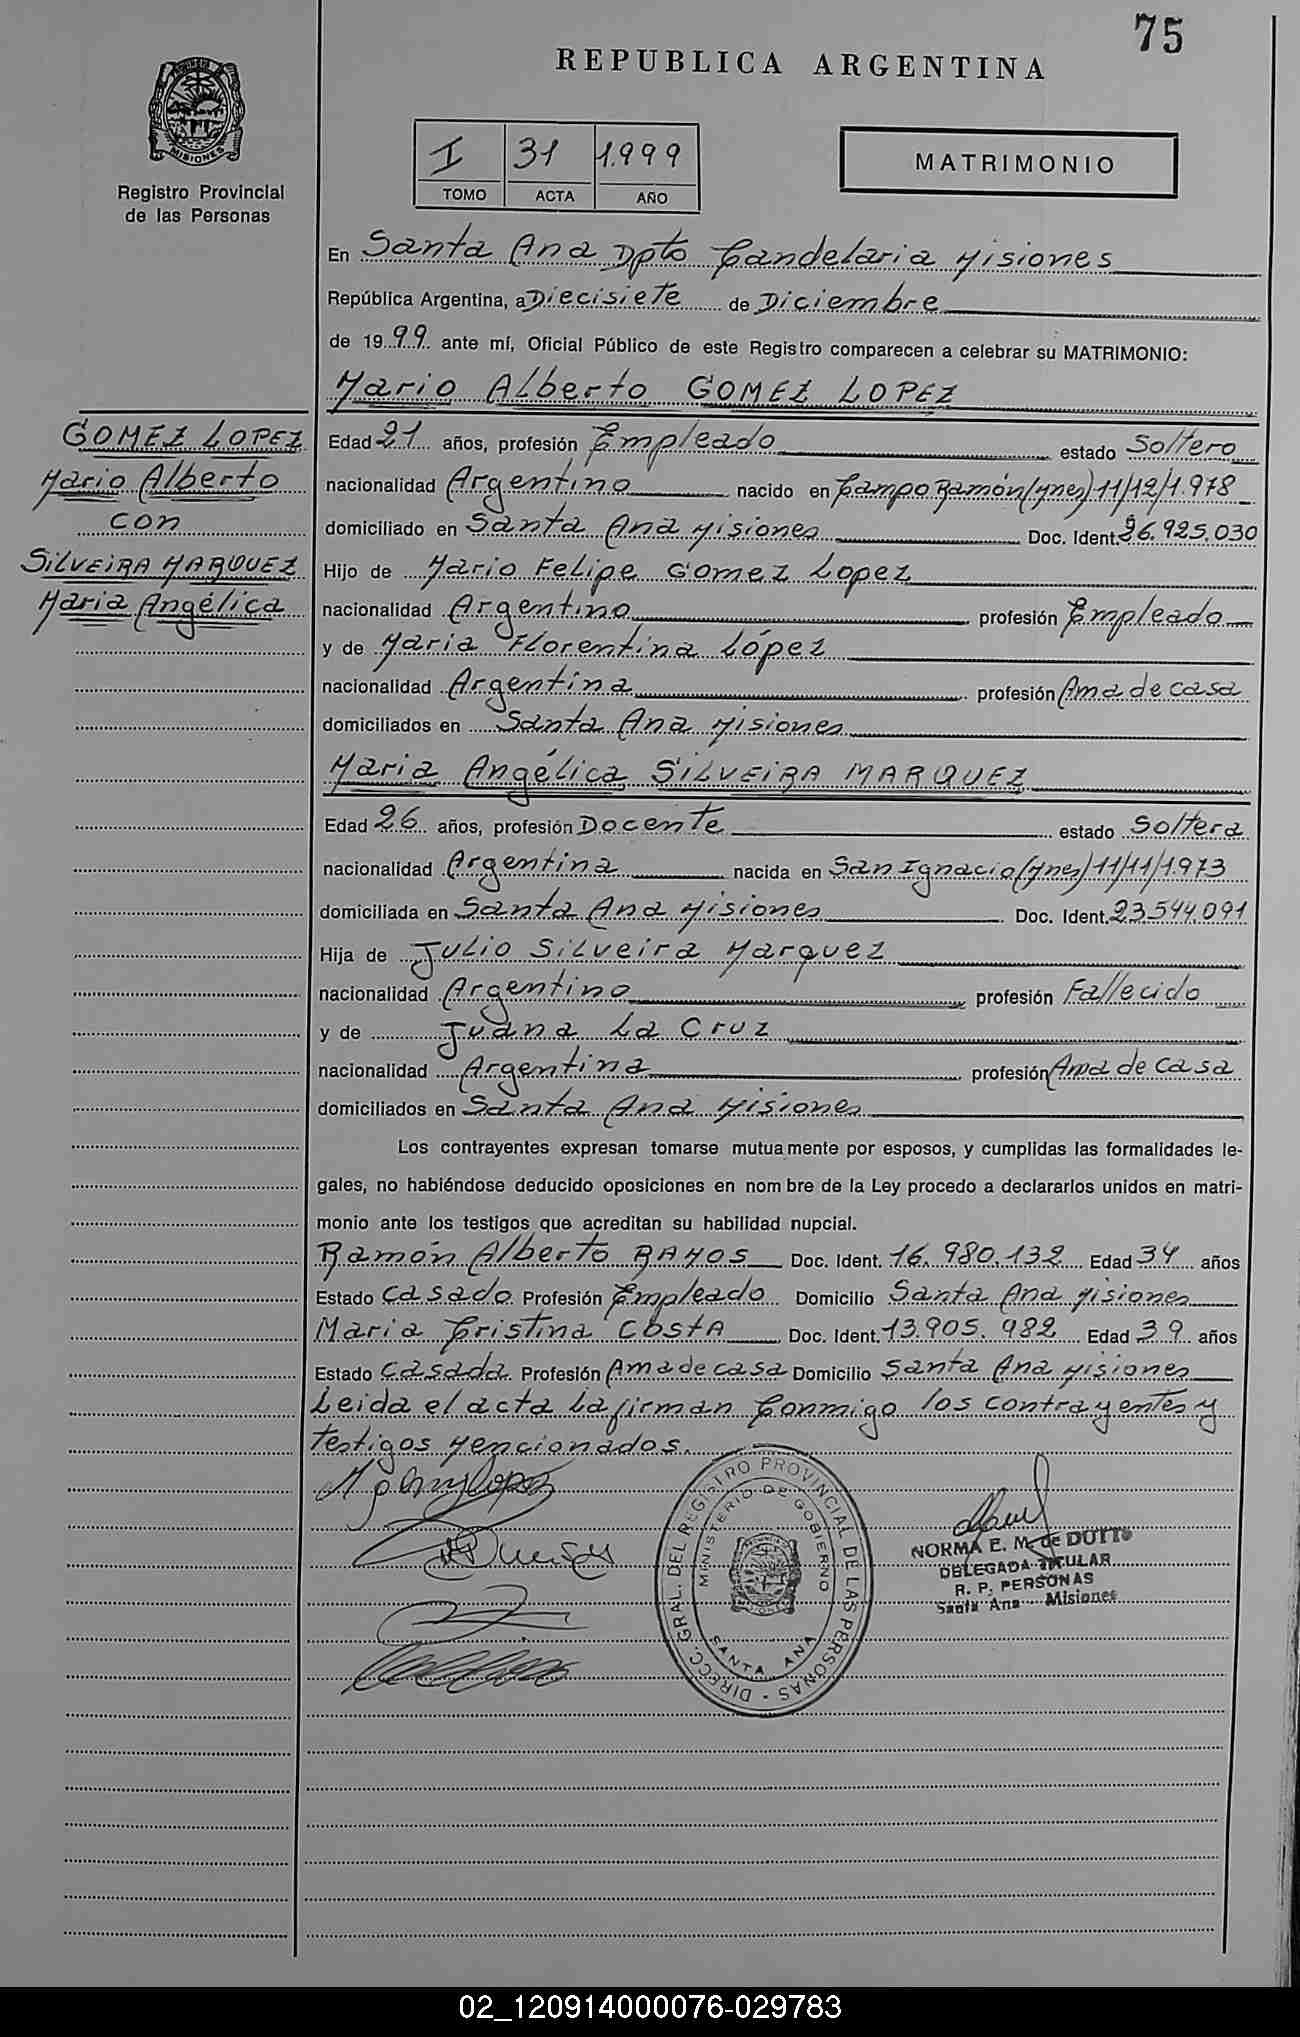 75
REPUBLICA ARGENTINA
MISIONES
Registro Provincial
de las Personas
I 31 1.999
TOMO ACTA AÑO
MATRIMONIO
En Santa Ana Dpto Candelaria Misiones
República Argentina, a Diecisiete de Diciembre
de 1999 ante mí, Oficial Público de este Registro comparecen a celebrar su MATRIMONIO:
Mario Alberto GOMEZ LOPEZ
GOMEZ LOPEZ
Mario Alberto
con
SILVEIRA MARQUEZ
Maria Angélica
Edad 21 años, profesión Empleado estado Soltero
nacionalidad Argentino nacido en Campo Ramón (Mnes) 11/12/1.978
domiciliado en Santa Ana Misiones Doc. Ident. 26.925.030
Hijo de Mario Felipe Gomez Lopez
nacionalidad Argentino profesión Empleado
y de Maria Florentina López
nacionalidad Argentina profesión Ama de casa
domiciliados en Santa Ana Misiones
Maria Angélica SILVEIRA MARQUEZ
Edad 26 años, profesión Docente estado Soltera
nacionalidad Argentina nacida en San Ignacio (Mnes) 11/11/1.973
domiciliada en Santa Ana Misiones Doc. Ident. 23.544.091
Hija de Julio Silveira Marquez
nacionalidad Argentino profesión Fallecido
y de Juana La Cruz
nacionalidad Argentina profesión Ama de casa
domiciliados en Santa Ana Misiones
Los contrayentes expresan tomarse mutuamente por esposos, y cumplidas las formalidades le-
gales, no habiéndose deducido oposiciones en nombre de la Ley procedo a declararlos unidos en matri-
monio ante los testigos que acreditan su habilidad nupcial.
Ramón Alberto RAMOS Doc. Ident. 16.980.132 Edad 34 años
Estado Casado Profesión Empleado Domicilio Santa Ana Misiones
Maria Cristina COSTA Doc. Ident. 13.905.982 Edad 39 años
Estado Casada Profesión Ama de casa Domicilio Santa Ana Misiones
Leida el acta la firman Conmigo los contrayentes y
testigos Mencionados.
DIRECC. GRAL. DEL REGISTRO PROVINCIAL DE LAS PERSONAS -
MINISTERIO DE GOBIERNO
SANTA ANA
NORMA E. M. de DUTTO
DELEGADA TITULAR
R. P. PERSONAS
Santa Ana - Misiones
02_120914000076-029783